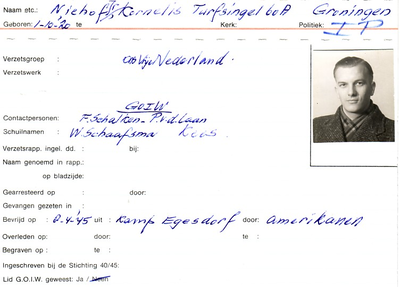 Naam etc.: Niehof Kornelis Turfsingel 60A Groningen
Geboren: 1-10-'20 te Kerk: Politiek: I P
Verzetsgroep : Vrij Nederland.
Verzetswerk :
GOIW
Contactpersonen: F. Schalken - P.v.d. Laan
Schuilnamen : W. Schaafsma Koos
Verzetsrapp. ingel. dd. : bij:
Naam genoemd in rapp.:
op bladzijde:
Gearresteerd op : door:
Gevangen gezeten in :
Bevrijd op : 8-4-'45 uit : Kamp Egesdorf door: amerikanen
Overleden op: door: te :
Begraven op : te :
Ingeschreven bij de Stichting 40/45:
Lid G.O.I.W. geweest: Ja / Neen